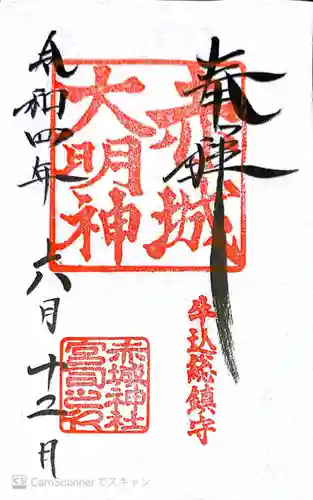 奉拝
赤城
大明神
牛込総鎮守
令和四年 六月 十二日
赤城神社
宮司之印
CamScanner でスキャン